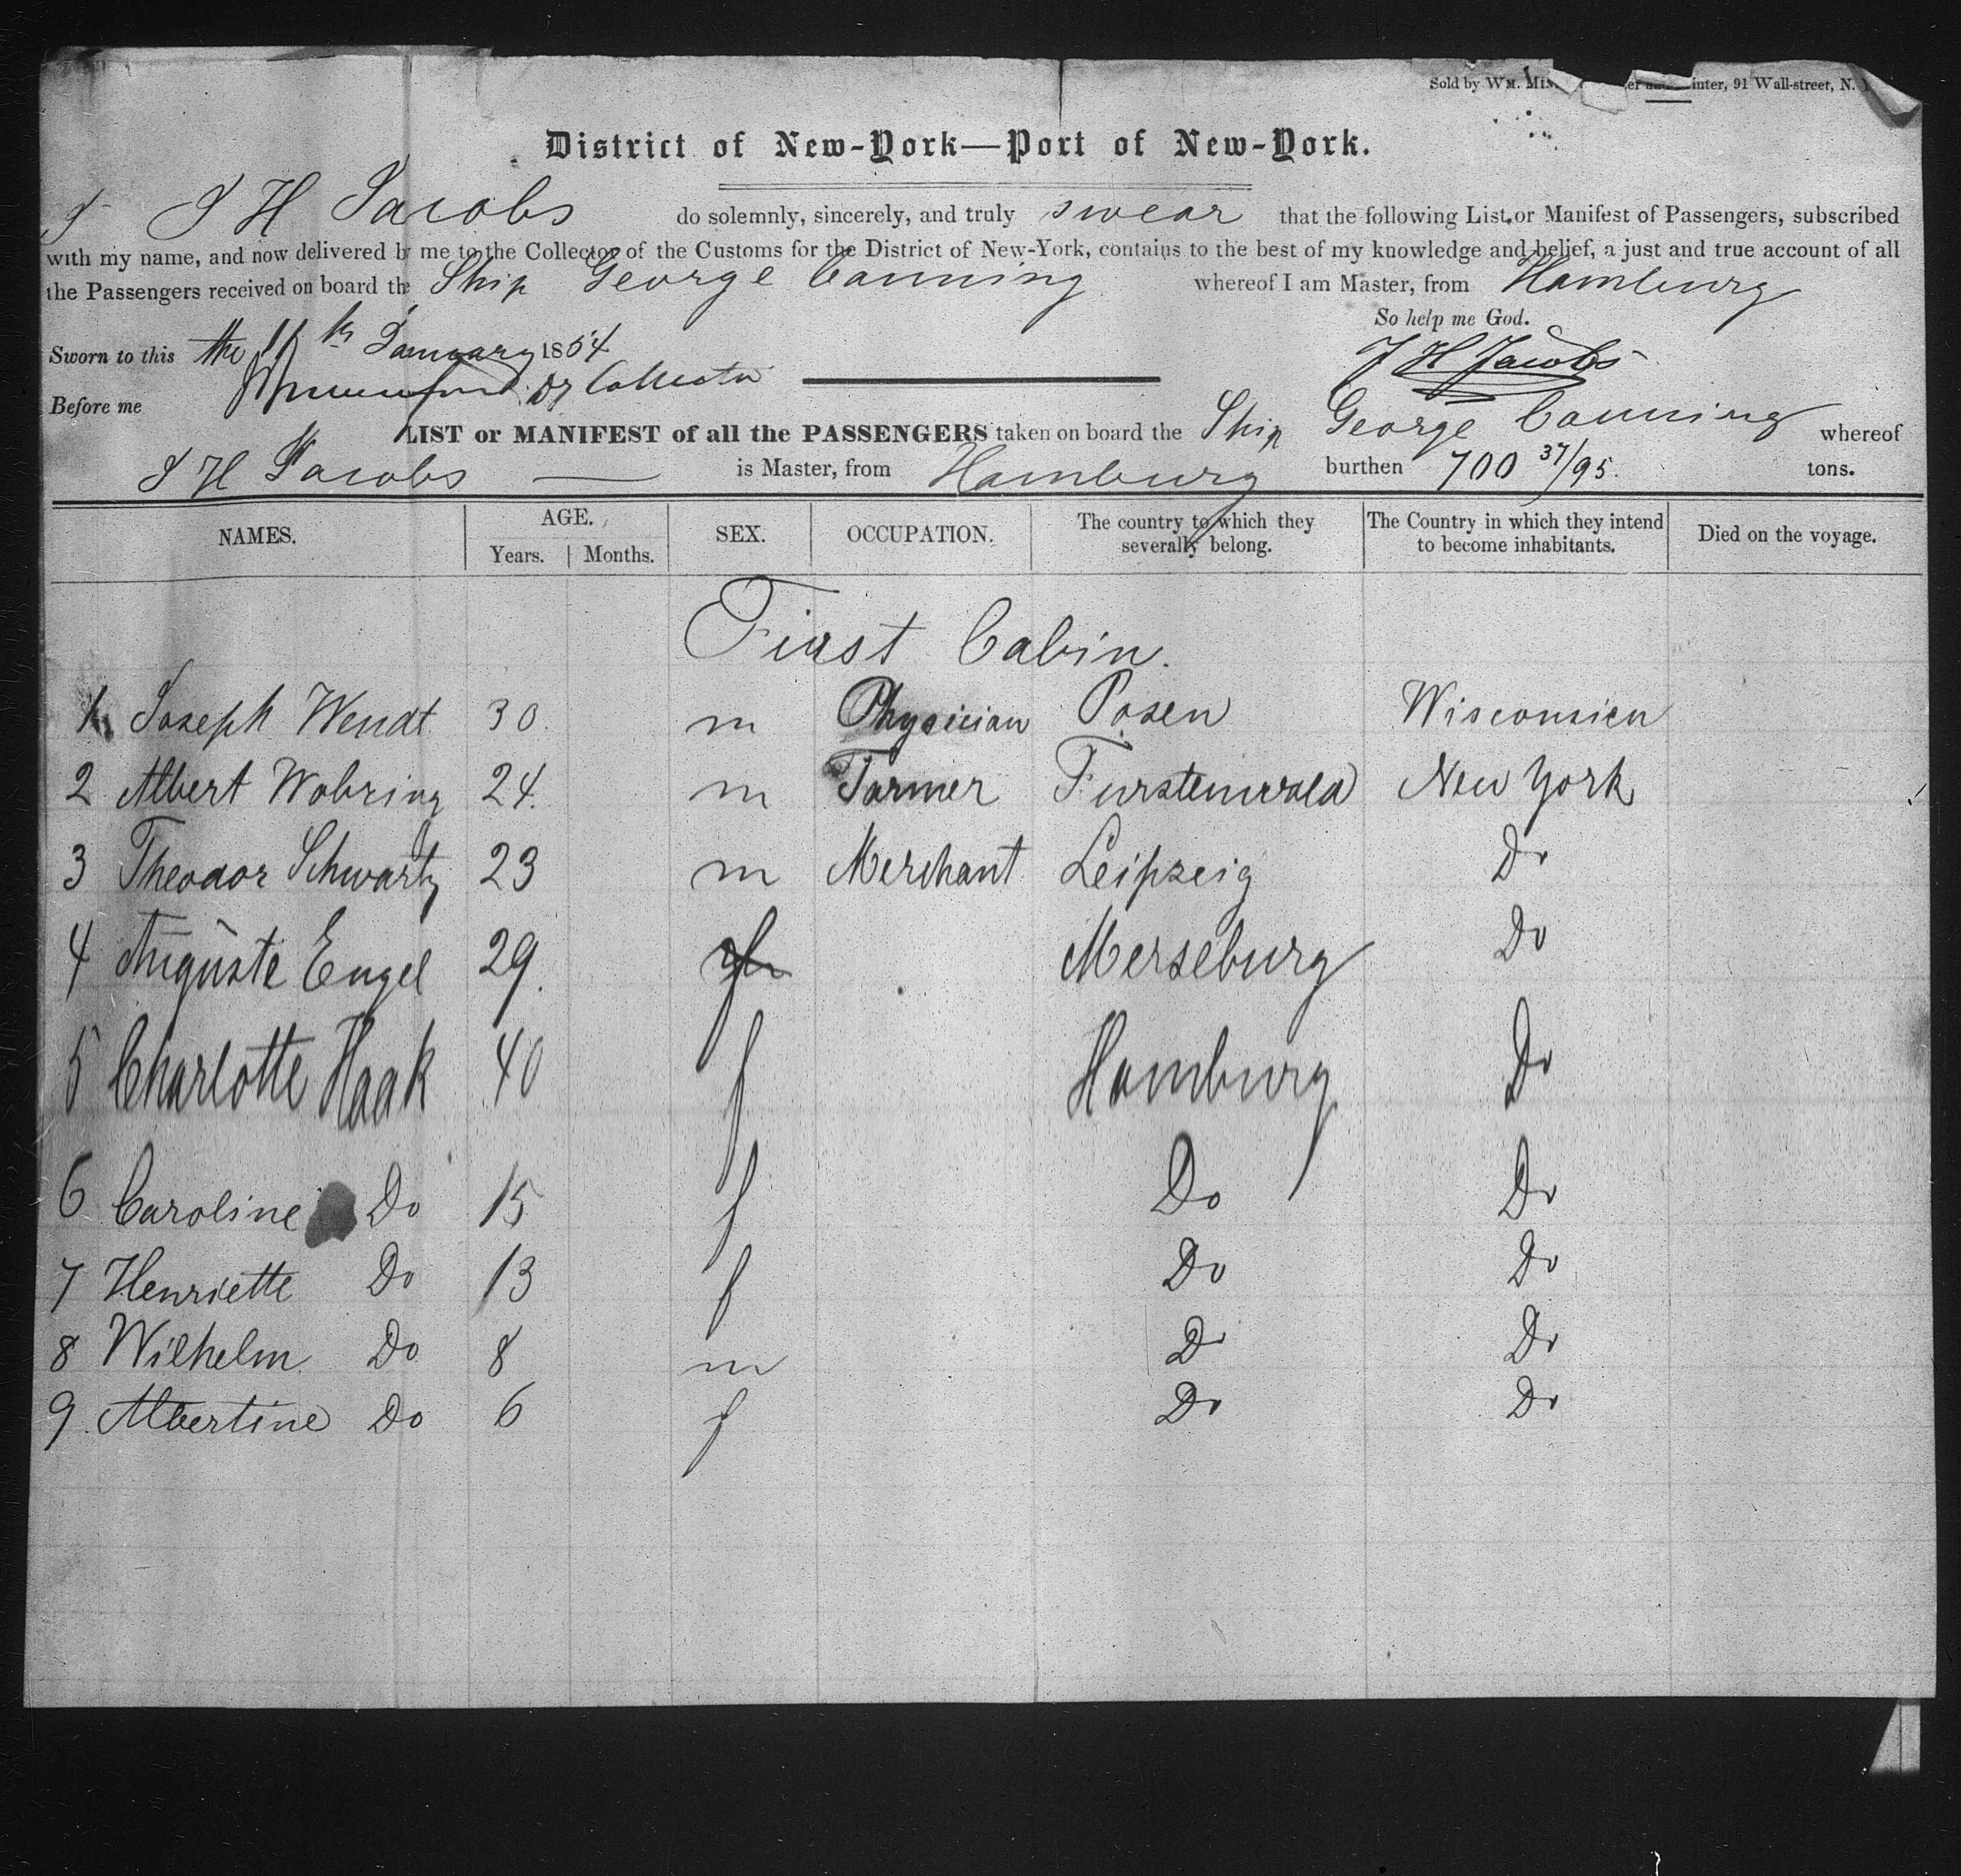 Sold by WM. inter, 91 Wall-street, N. Y
District of New-York—Port of New-York.
I J H Jacobs do solemnly, sincerely, and truly swear that the following List or Manifest of Passengers, subscribed
with my name, and now delivered by me to the Collector of the Customs for the District of New-York, contains to the best of my knowledge and belief, a just and true account of all
the Passengers received on board the Ship George Canning whereof I am Master, from Hamburg
So help me God.
Sworn to this the 11th January 1854
J H Jacobs
Before me Dy Collector
LIST or MANIFEST of all the PASSENGERS taken on board the Ship George Canning whereof
J H Jacobs is Master, from Hamburg burthen 700 37/95 tons.
NAMES. AGE. Years. Months. SEX. OCCUPATION. The country to which they severally belong. The Country in which they intend to become inhabitants. Died on the voyage.
First Cabin.
1 Joseph Wendt 30 m Physician Posen Wisconsien
2 Albert Wobring 24 m Farmer Furstenwald New York
3 Theodor Schwartz 23 m Merchant Leipzeig Do
4 Auguste Engel 29 f Merseburg Do
5 Charlotte Haak 40 f Hamburg Do
6 Caroline Do 15 f Do Do
7 Henriette Do 13 f Do Do
8 Wilhelm Do 8 m Do Do
9 Albertine Do 6 f Do Do